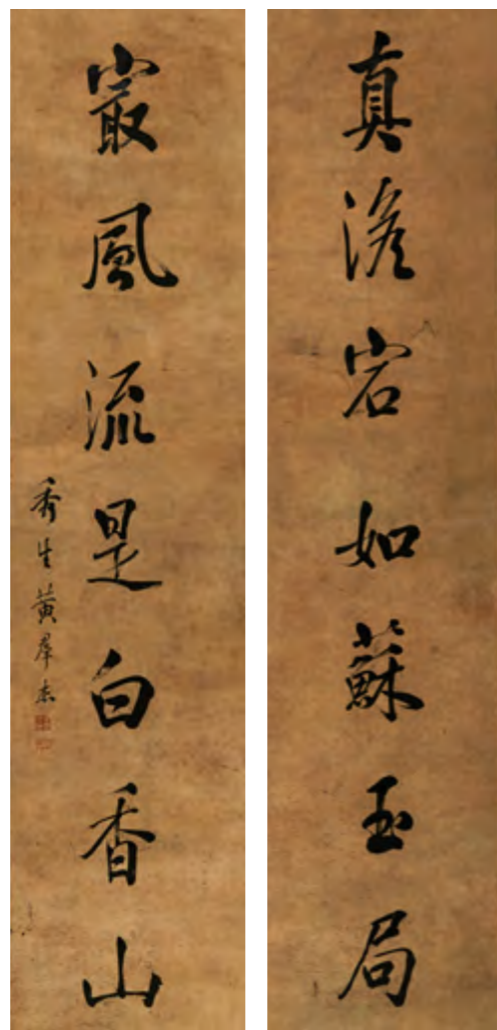 真澹宕如蘇玉局
㝡風流是白香山
秀生黃羣杰